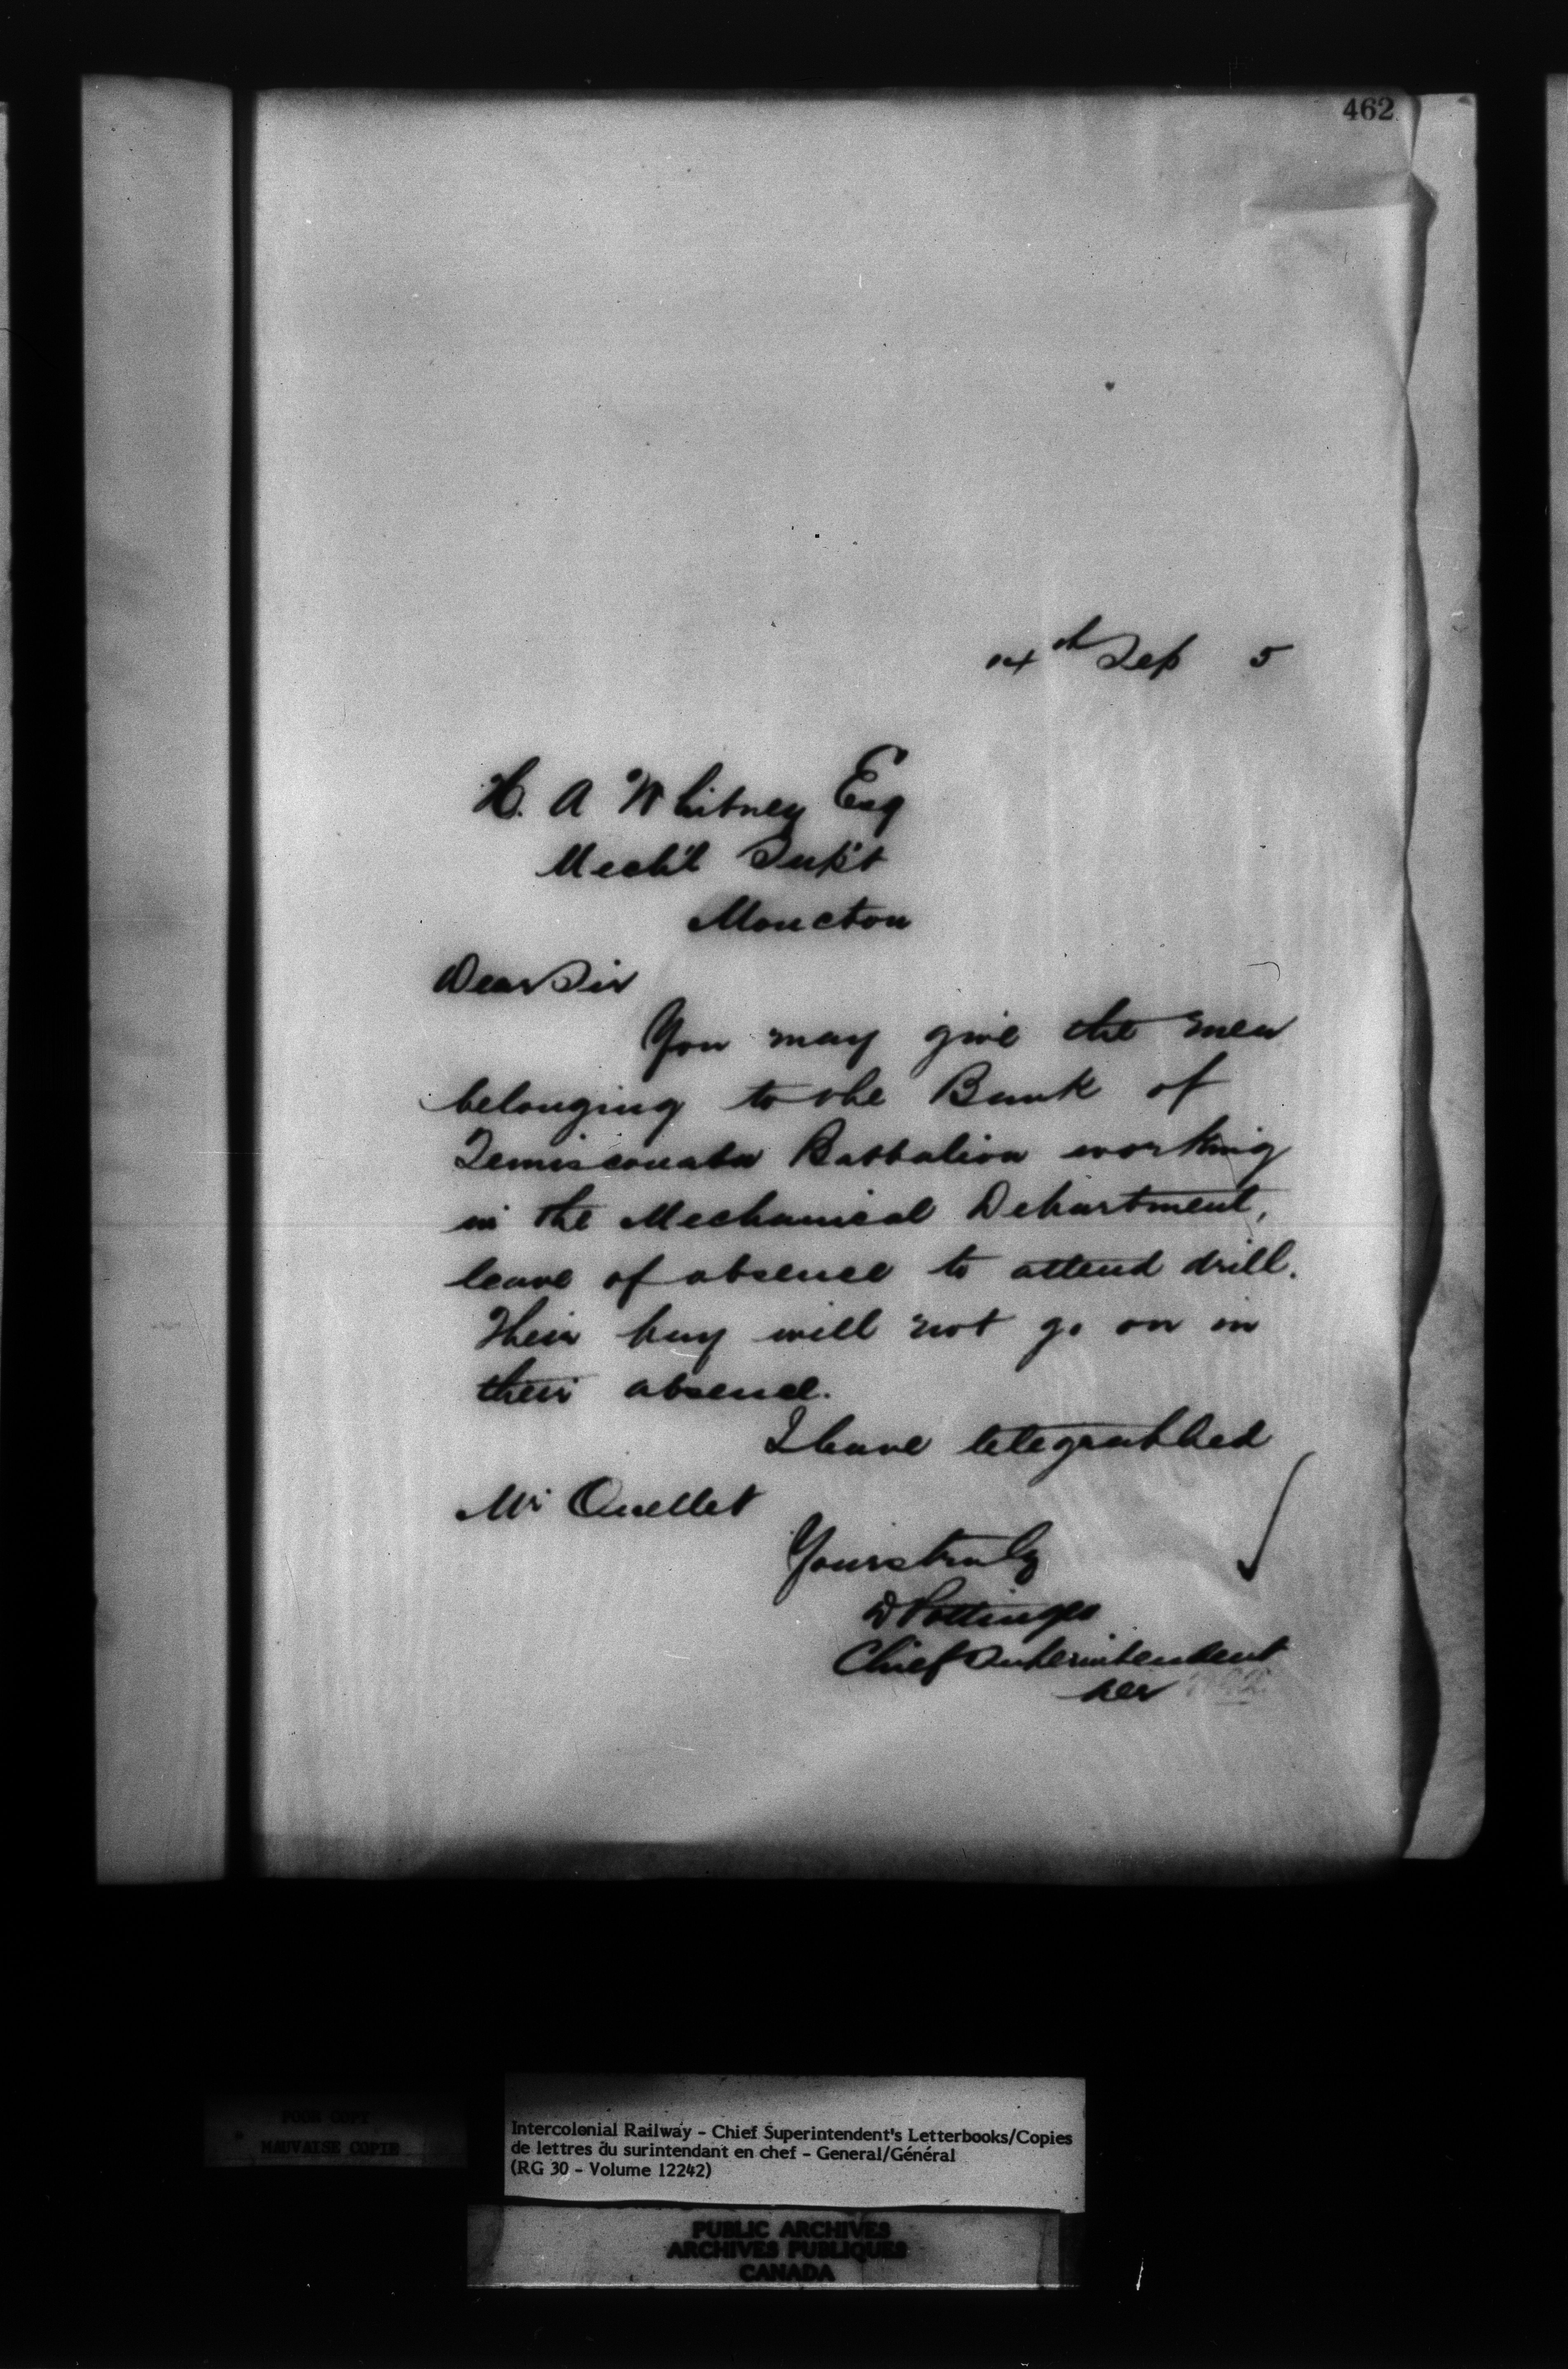 462
14th Sep 5
H. A Whitney Esq
Mech'l Sup't
Moncton
Dear Sir
You may give the men
belonging to the Bank of
Temiscouata Battalion working
in the Mechanical Department,
leave of absence to attend drill.
Their pay will not go on in
their absence.
I have telegraphed
Mr Ouellet
Yours truly
D Pottinger
Chief Superintendent
per
POOR COPY
MAUVAISE COPIE
Intercolonial Railway - Chief Superintendent's Letterbooks/Copies
de lettres du surintendant en chef - General/Général
(RG 30 - Volume 12242)
PUBLIC ARCHIVES
ARCHIVES PUBLIQUES
CANADA